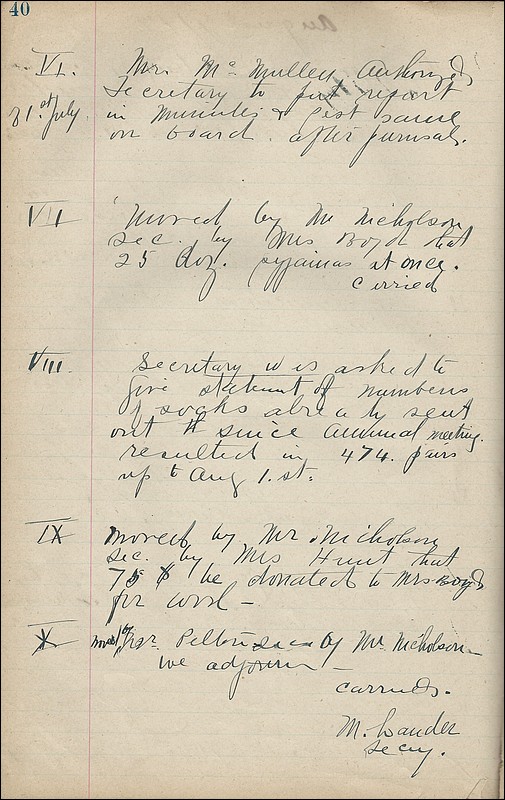 40
VI. Mr. Mc Mullen Authorized
31st July. Secretary to put report
in Minutes & Post same
on board. after perusal.
VII Moved by Mr Nicholson
sec. by Mrs Boyd that
25 doz. pyjamas at once.
Carried
VIII. Secretary was asked to
give statement of numbers
of socks already sent
out since annual meeting.
resulted in 474. pairs
up to Aug 1.st.
IX Moved by Mr. Nicholson
sec. by Mrs Hunt that
75 $ be donated to Mrs Boyd
for wool –
X Moved by Pelton sec by Mr. Nicholson –
we adjourn –
carried.
M. Lauder
secy.